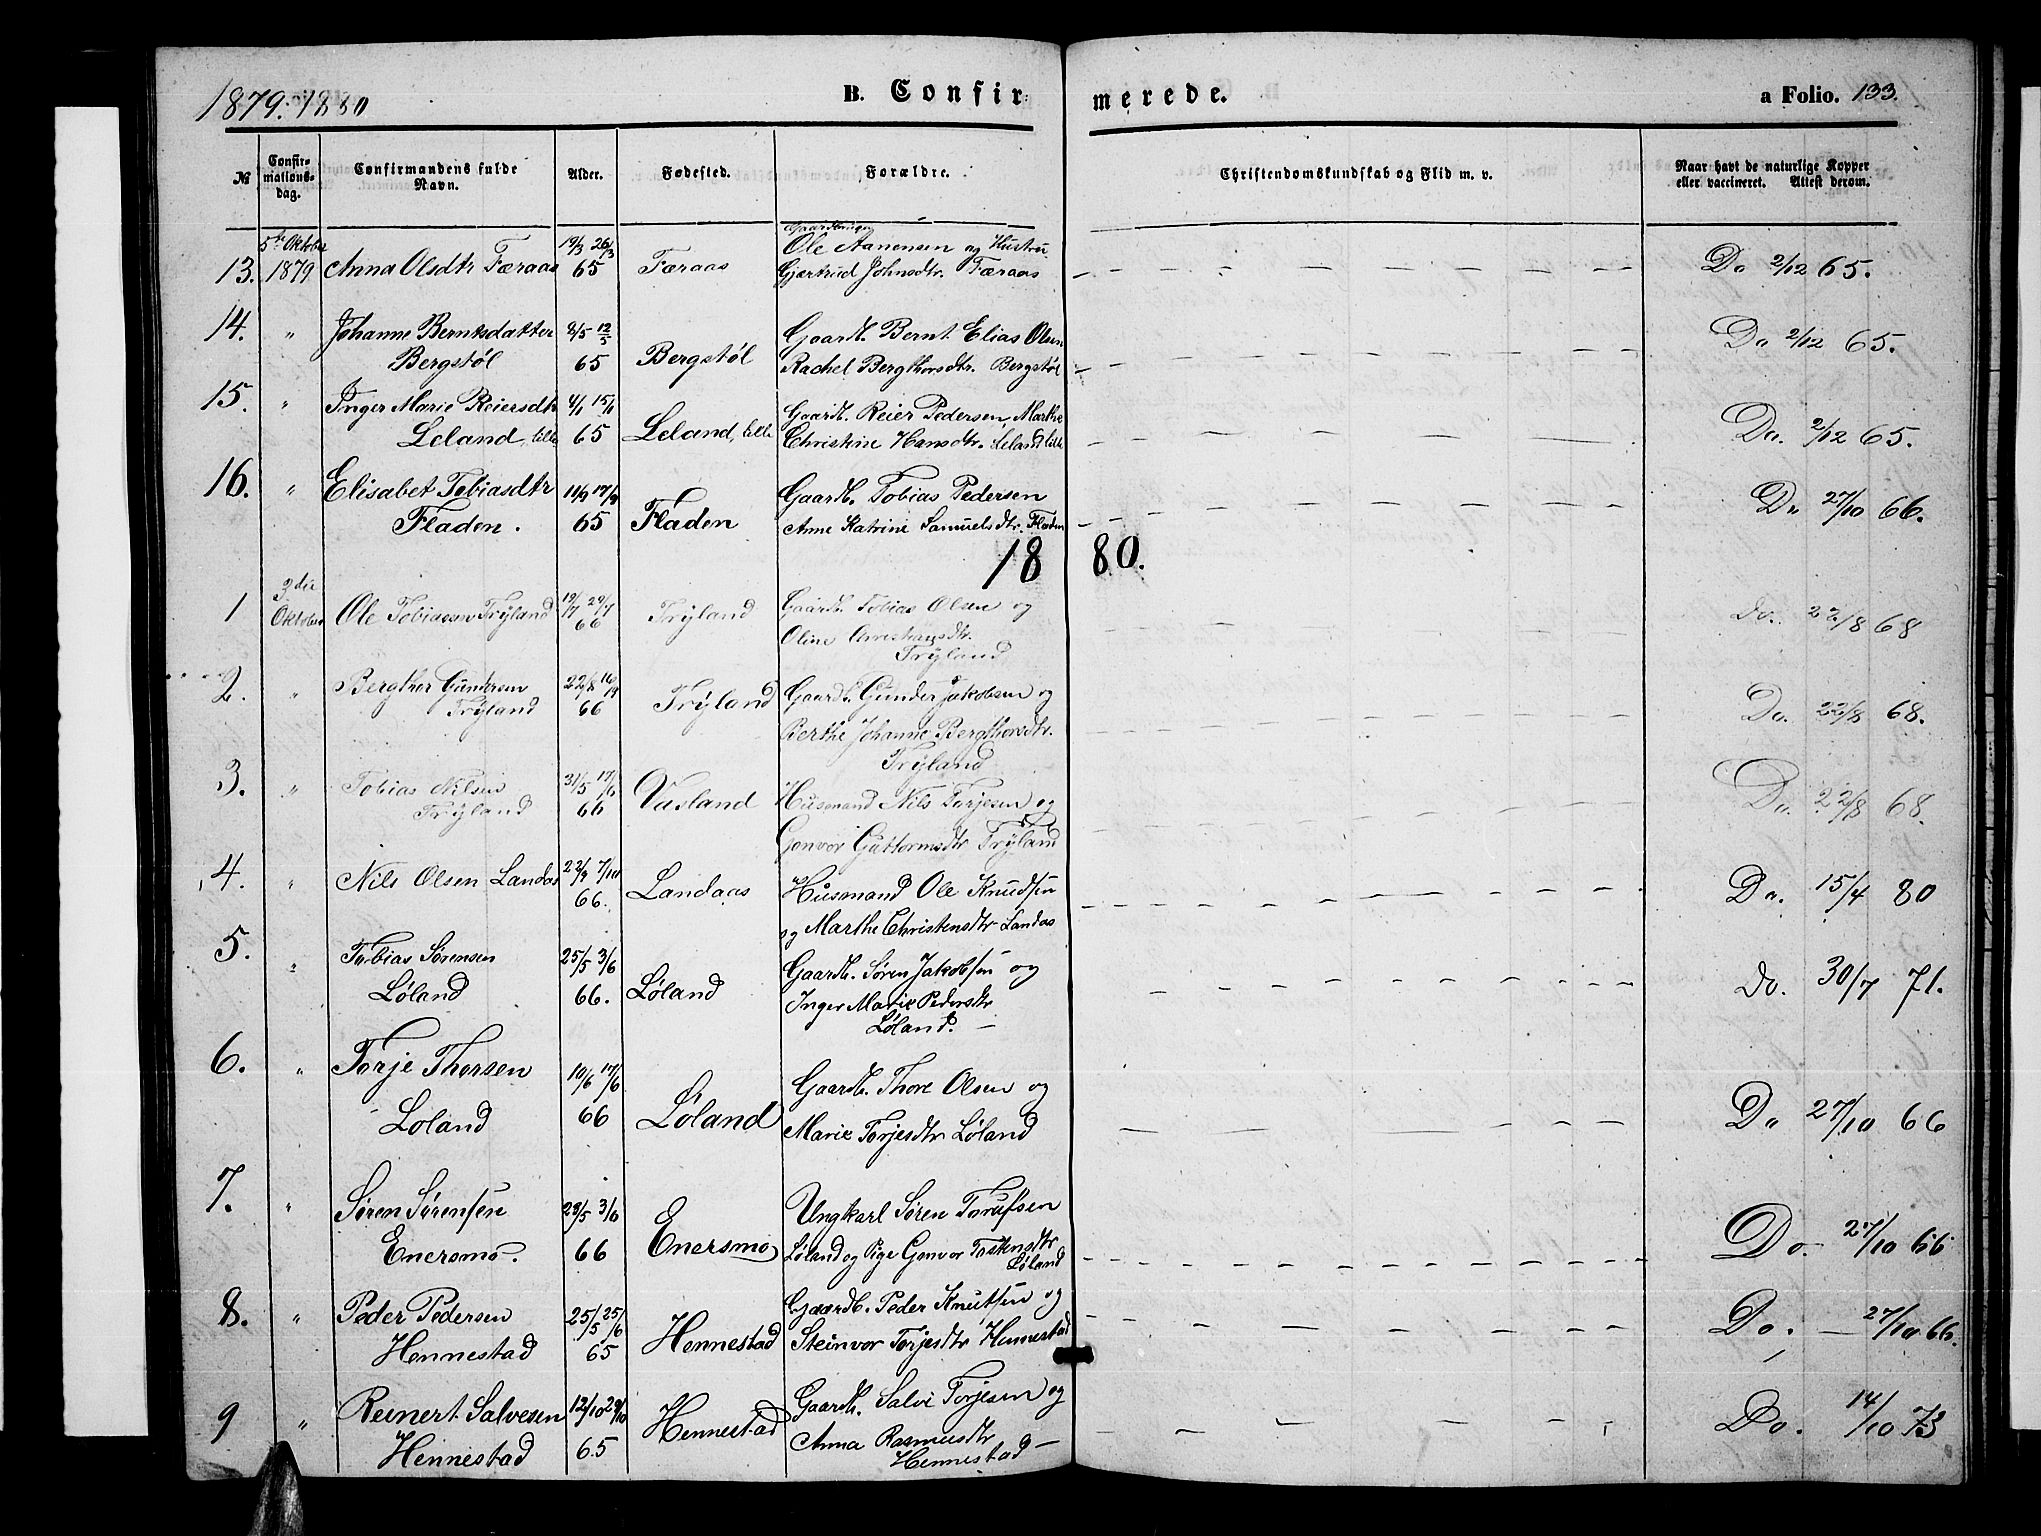 1879. 1880 B. Confirmerede. a Folio. 133.
№ Confirmationsdag. Confirmandens fulde Navn. Alder. Fødested. Forældre. Christendomskundskab og Flid m. v. Naar havt de naturlige Kopper eller vaccineret. Attest derom.
5te Oktober 19/3 26/3 Gaardbruger Ole Aanensen og Hustru
13. 1879 Anna Olsdtr Færaas 65 Færaas Gjærtrud Johnsdtr. Færaas Do 2/12 65.
14. " Johanne Berntsdatter 8/5 12/5 Gaardb. Bernt Elias Olsen Do 2/12 65.
Bergstøl 65 Bergstøl Rachel Bergthorsdtr. Bergstøl
15. " Inger Marie Reiersdtr 4/1 15/1 Gaardb. Reier Pedersen, Marthe
Leland, lille 65 Leland, lille Christine Hansdtr. Leland lille Do. 2/12 65.
16. " Elisabet Tobiasdtr 11/9 17/9 Gaardb. Tobias Pedersen Do 27/10 66.
Fladen. 65 Fladen Anne Katrine Samuelsdtr. Fladen
1880.
3die 19/7 29/7 Gaardb. Tobias Olsen og
1 Oktober Ole Tobiassen Trÿland 66 Trÿland Oline Christensdtr. Do. 22/8 68
Trÿland
2. " Bergthor Gundersen 22/8 16/9 Trÿland Gaardb. Gunder Jakobsen og Do. 22/8 68.
Trÿland 66 Berthe Johanne Bergthorsdtr.
Trÿland
3. " Tobias Nilsen 31/5 17/6 Vasland Husmand Nils Torjesen og Do. 22/8 68.
Trÿland 66 Gonvor Guttormsdtr Trÿland
4. " Nils Olsen Landas 22/9 7/10 Landaas Husmand Ole Knudsen Do. 15/4 80
66. og Marthe Christensdtr Landas
5. " Tobias Sørensen 25/5 3/6 Gaardb. Søren Jakobsen og
Løland 66. Løland Inger Marie Pedersdtr Do. 30/7 71.
Løland.
6. " Torje Thorsen 10/6 17/6 Gaardb. Thore Olsen og
Løland 66 Løland Marie Torjesdtr Løland Do 27/10 66
7. " Søren Sørensen 23/5 3/6 Ungkarl Søren
Enersmo. 66 Enersmo Løland og Pige Gonvor Tostensdtr Do. 27/10 66
Løland
8. " Peder Pedersen 25/5 25/6 Gaardb. Peder Knutsen og Do. 27/10 66.
Hennestad 65 Hennestad Steinvor Torjesdtr Hennestad
9 " Reinert Salvesen 12/10 29/10 Hennestad Gaardb. Salve Torjesen og Do. 14/10 73
Hennestad 65 Anna Rasmusdtr
Hennestad